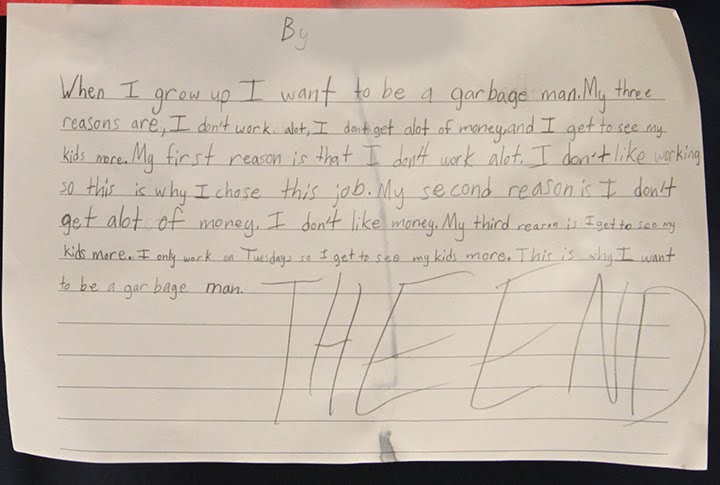 By
When I grow up I want to be a garbage man. My three
reasons are, I don't work alot, I dont get alot of money, and I get to see my
kids more. My first reason is that I don't work alot. I don't like working
so this is why I chose this job. My second reason is I don't
get alot of money. I don't like money. My third reason is I get to see my
kids more. I only work on Tuesdays so I get to see my kids more. This is why I want
to be a garbage man.
THE END